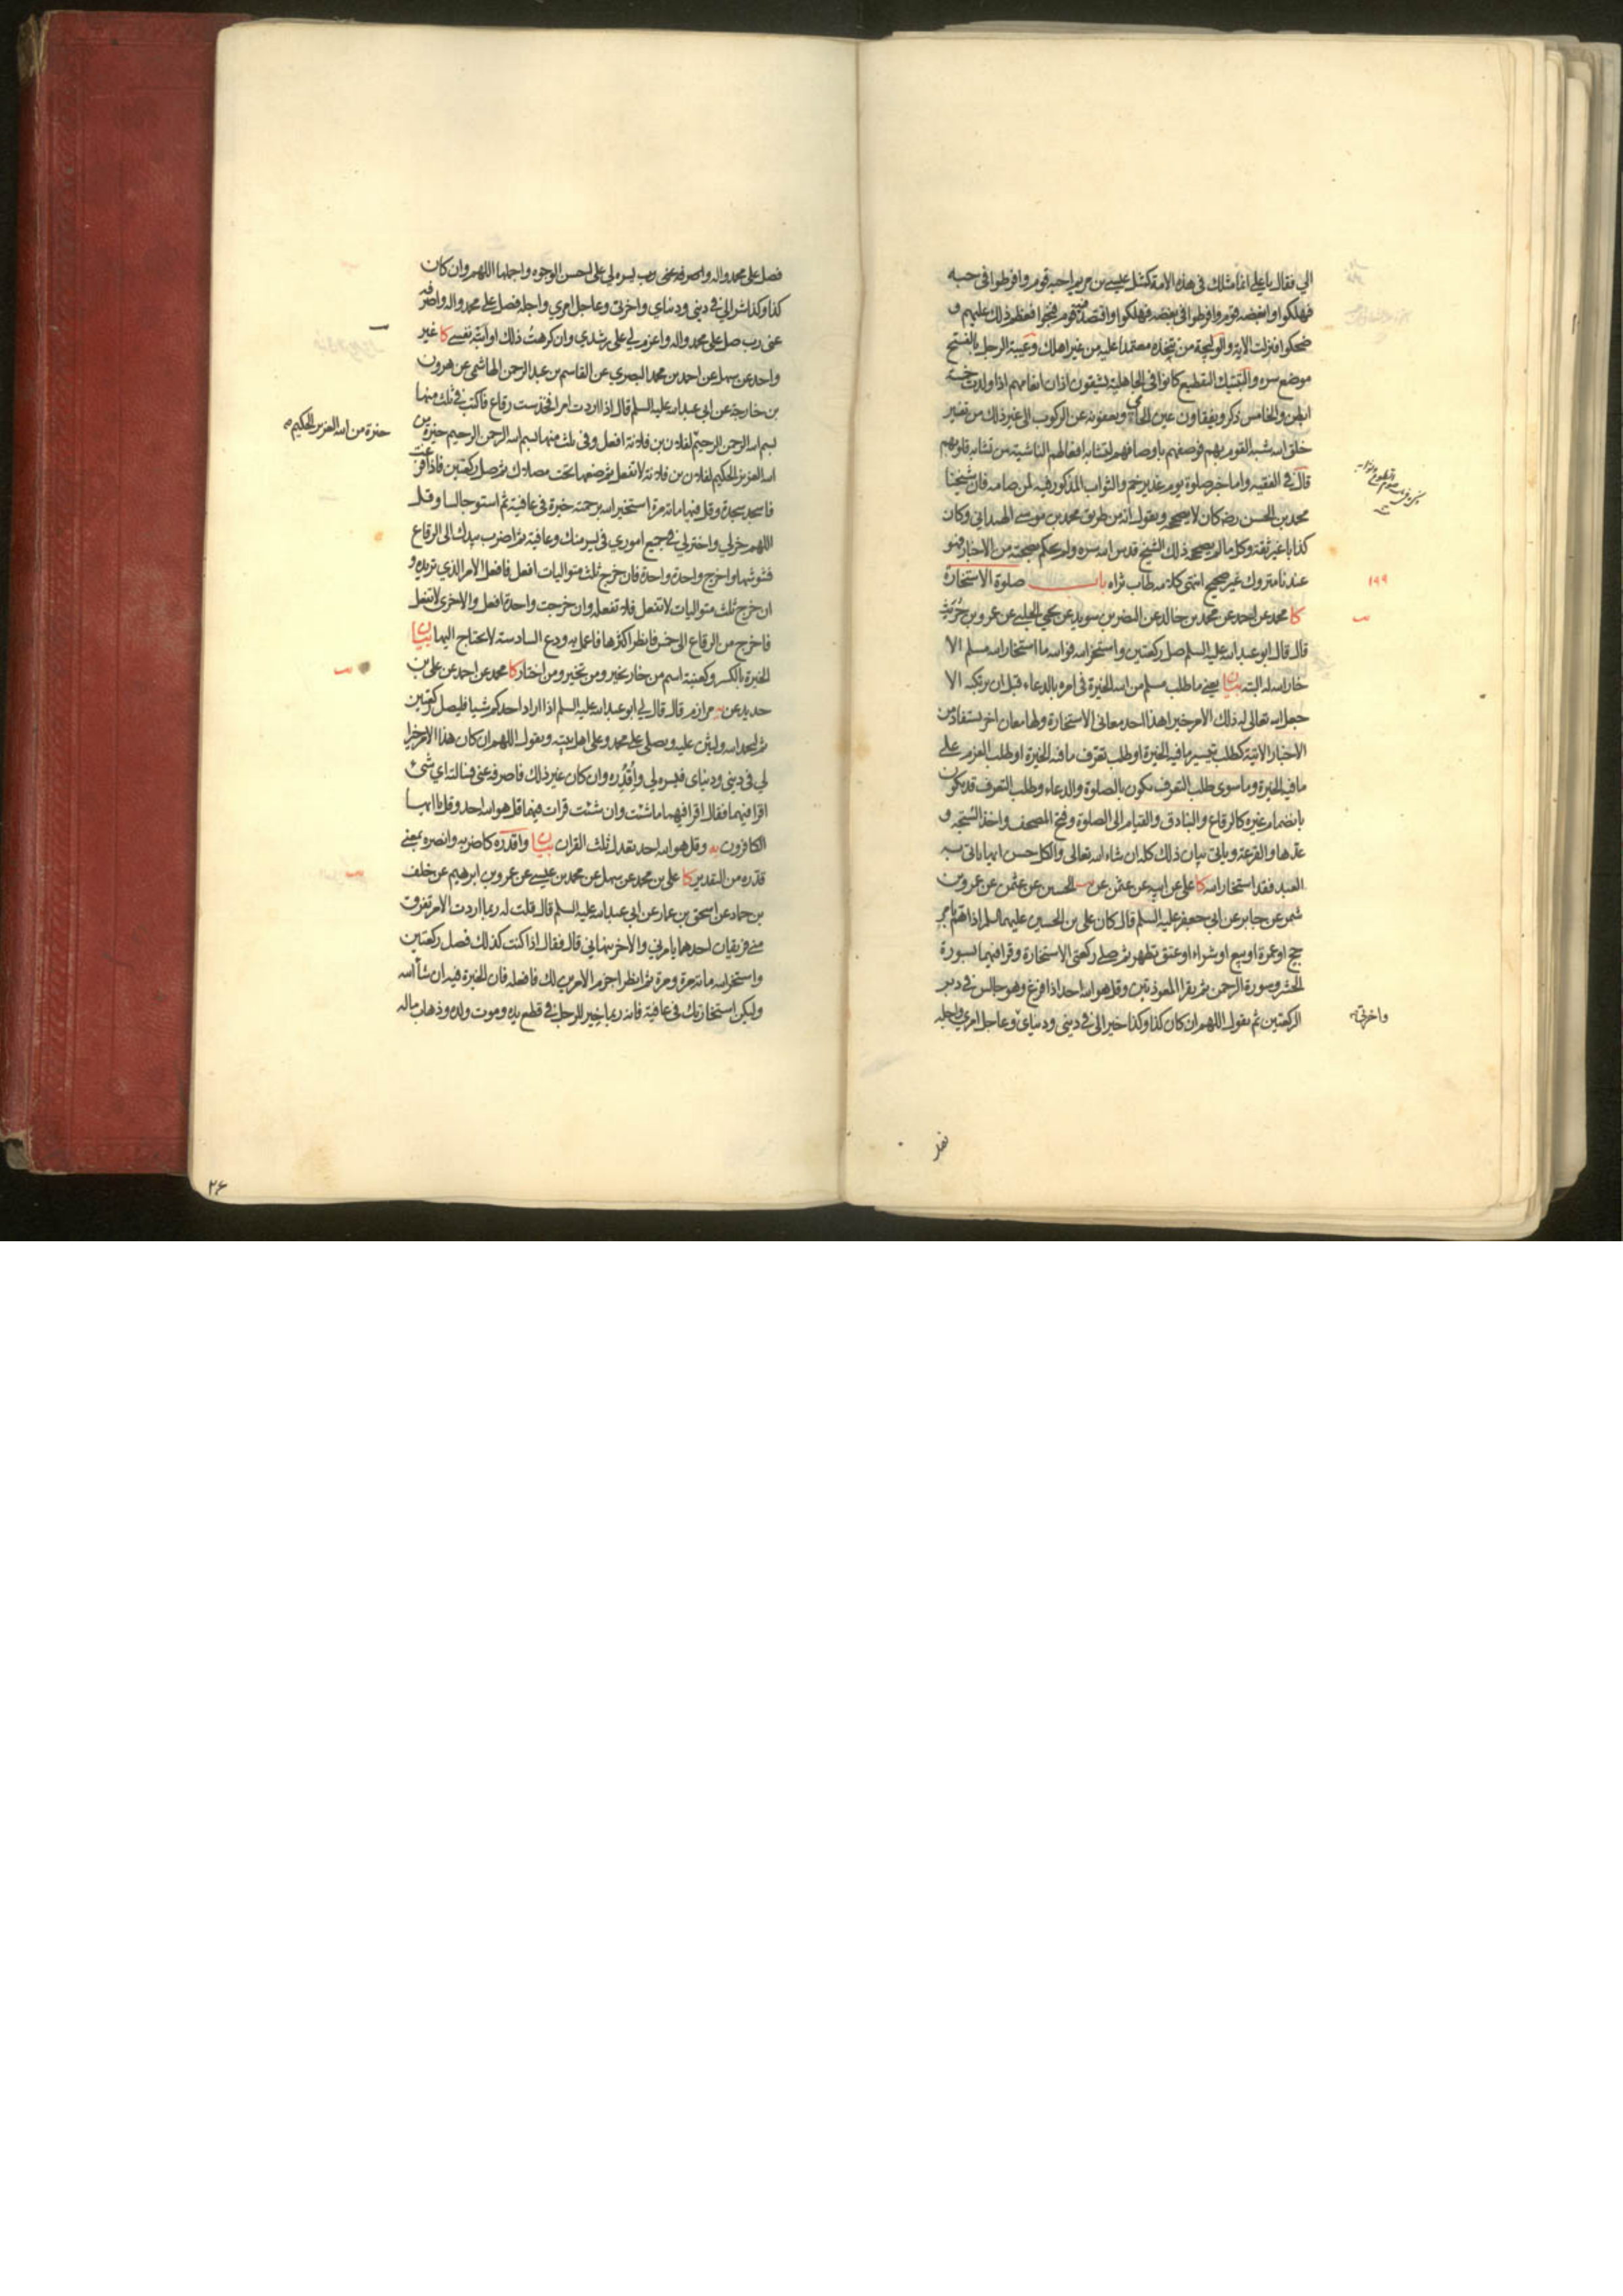 الي فقال يا علي انما مثلك في هذه الامة كمثل عيسى بن مريم احبه قوم وافرطوا في حبه
فهلكوا وابغضه قوم وافرطوا في بغضه فهلكوا واقتصد فيه قوم فنجوا فعظم ذلك عليهم و
ضحكوا فنزلت الاية والوليجة من تتخذه معتمدا عليه من غير اهلك وعيبة الرجل بالفتح
موضع سره والتبتيك التقطيع كانوا في الجاهلية يشقون اذان انعامهم اذا ولدت خمسة
ابطن والخامس ذكر ويفقاون عين الحامي ويعفونه عن الركوب الى غير ذلك من تغيير
خلق الله شبه القوم بهم فوصفهم باوصافهم لتشابه افعالهم الناشية من تشابه قلوبهم
قال في الفقيه واما خبر صلوة يوم غدير خم والثواب المذكور فيه لمن صامه فان شيخنا
محمد بن الحسن رض كان لا يصححه ويقول انه من طريق محمد بن موسى الهمداني وكان
كذابا غير ثقة وكل ما لم يصححه ذلك الشيخ قدس الله سره ولم يحكم بصحته من الاخبار فهو
عندنا متروك غير صحيح انتهى كلامه طاب ثراه باب صلوة الاستخارة
١٩٩
كا محمد عن احمد عن محمد بن خالد عن النضر بن سويد عن يحيى الحلبي عن عمرو بن حريث
قال قال ابو عبد الله عليه السلم صل ركعتين واستخر الله فوالله ما استخار الله مسلم الا
خار الله له البتة بيان يعني ما طلب مسلم من الله الخيرة في امره بالدعاء قبل ان يرتكبه الا
جعل الله تعالى له ذلك الامر خيرا هذا احد معاني الاستخارة ولها معان اخر يستفاد من
الاخبار الاتية كطلب تيسير ما فيه الخيرة او طلب تعرف ما فيه الخيرة او طلب العزم على
ما فيه الخيرة وما سوى طلب التعرف يكون بالصلوة والدعاء وطلب التعرف قد يكون
بانضمام غيره كالرقاع والبنادق والقيام الى الصلوة وفتح المصحف واخذ السبحة و
عدها والقرعة وياتي بيان ذلك كله ان شاء الله تعالى والكل حسن ايها ياتي به
العبد فقد استخار الله كا علي عن ابيه عن عثمن عن الحسين عن عثمن عن عمرو بن
شمر عن جابر عن ابي جعفر عليه السلم قال كان علي بن الحسين عليهما السلم اذا هم بامر
حج او عمرة او بيع او شراء او عتق تطهر ثم صلى ركعتي الاستخارة وقرا فيهما بسورة
الحشر وسورة الرحمن ثم يقرا المعوذتين وقل هو الله احد اذا فرغ وهو جالس في دبر
الركعتين ثم يقول اللهم ان كان كذا وكذا خيرا لي في ديني ودنياي وعاجل امري واجله
واخرتي
فصل على محمد واله واصرفه عني رب يسره لي على احسن الوجوه واجملها اللهم وان كان
كذا وكذا شرا لي في ديني ودنياي واخرتي وعاجل امري واجله فصل على محمد واله واصرفه
عني رب صل على محمد واله واعزم لي على رشدي وان كرهت ذلك او ابته نفسي كا غير
واحد عن سهل عن احمد بن محمد البصري عن القاسم بن عبد الرحمن الهاشمي عن هرون
بن خارجة عن ابي عبد الله عليه السلم قال اذا اردت امرا فخذ ست رقاع فاكتب في ثلث منها
بسم الله الرحمن الرحيم لفلان بن فلانة افعل وفي ثلث منها بسم الله الرحمن الرحيم خيرة من
خيرة من الله العزيز الحكيم
الله العزيز الحكيم لفلان بن فلانة لا تفعل ثم ضعها تحت مصلاك ثم صل ركعتين فاذا فرغت
فاسجد سجدة وقل فيها مائة مرة استخير الله برحمته خيرة في عافية ثم استو جالسا وقل
اللهم خر لي واختر لي في جميع اموري في يسر منك وعافية ثم اضرب بيدك الى الرقاع
فشوشها واخرج واحدة واحدة فان خرج ثلث متواليات افعل فافعل الامر الذي تريده و
ان خرج ثلث متواليات لا تفعل فلا تفعله وان خرجت واحدة افعل والاخرى لا تفعل
فاخرج من الرقاع الى خمس فانظر اكثرها فاعمل به ودع السادسة لا تحتاج اليها بيان
الخيرة بالكسر وكعنبة اسم من خار يخير ومن تخير ومن اختار كا محمد عن احمد عن علي بن
حديد عن مرازم قال قال لي ابو عبد الله عليه السلم اذا اراد احدكم شيئا فليصل ركعتين
ثم ليحمد الله وليثن عليه ويصلي على محمد وعلى اهل بيته ويقول اللهم ان كان هذا الامر خيرا
لي في ديني ودنياي فيسره لي واقدره وان كان غير ذلك فاصرفه عني فسالته اي شئ
اقرا فيهما فقال اقرا فيهما ما شئت وان شئت قرات فيهما قل هو الله احد وقل يا ايها
الكافرون يه وقل هو الله احد تعدل ثلث القران بيان واقدره كاضربه وانصره بمعنى
قدره من التقدير كا علي بن محمد عن سهل عن محمد بن عيسى عن عمرو بن ابرهيم عن خلف
بن حماد عن اسحق بن عمار عن ابي عبد الله عليه السلم قال قلت له ربما اردت الامر تفرق
مني فريقان احدهما يامرني والاخر ينهاني قال فقال اذا كنت كذلك فصل ركعتين
واستخر الله مائة مرة ومرة ثم انظر اجزم الامرين لك فافعله فان الخيرة فيه ان شاء الله
ولتكن استخارتك في عافية فانه ربما خير للرجل في قطع يده وموت ولده وذهاب ماله
٢۶